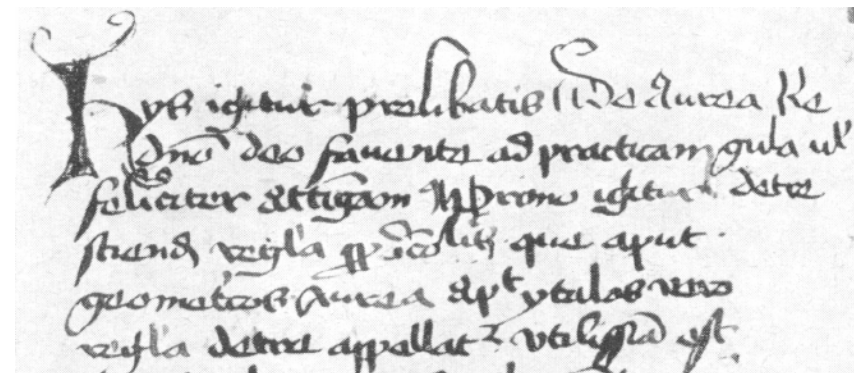 Hys igitur prelibatis De Aurea Re
deo favente ad practicam gula ul'
feliciter attīgam Primo igitur detre
sciend regl'a que aput
geometros Aurea apt ytalos vero
regl'a detre appellat utilissīa est